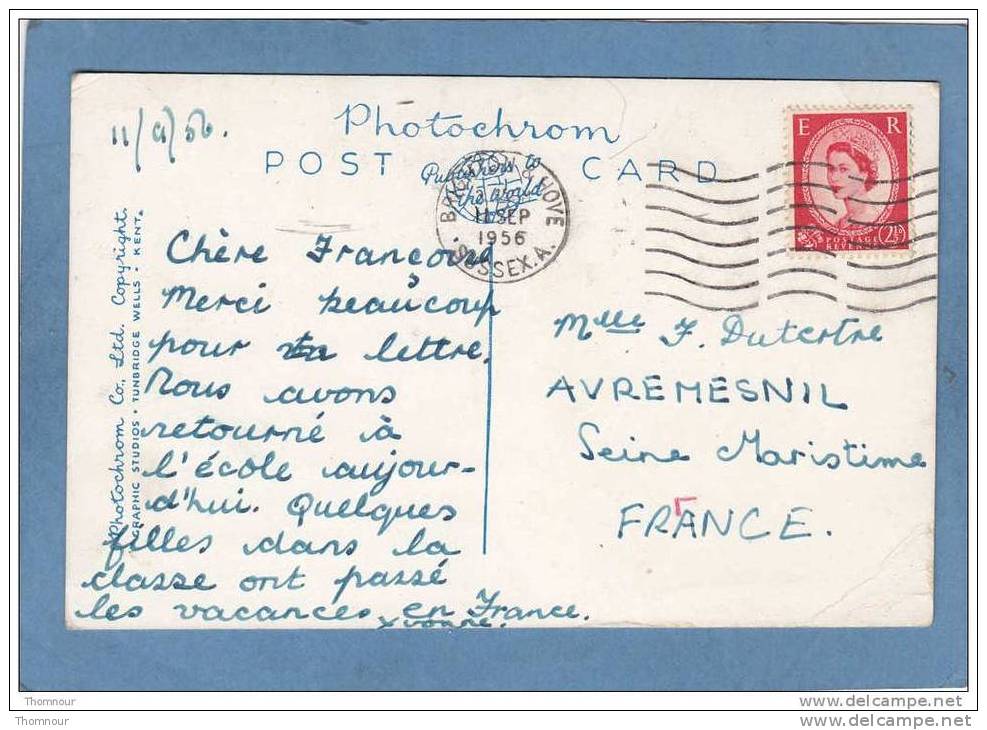 11/9/56.
Photochrom
POST CARD
Publishers to
the World
BRIGHTON & HOVE
11 SEP
1956
SUSSEX.A.
E R
POSTAGE
REVENUE
2½D
Photochrom Co., Ltd. Copyright.
GRAPHIC STUDIOS • TUNBRIDGE WELLS • KENT.
Chère Françoise
Merci beaucoup
pour ta lettre.
Nous avons
retourné à
l'école aujour-
d'hui. Quelques
filles dans la
classe ont passé
les vacances en France.
Yvonne.
Mlle F. Dutertre
AVREMESNIL
Seine Maristime
FRANCE.
Thomnour
Thomnour
www.delcampe.net
www.delcampe.net